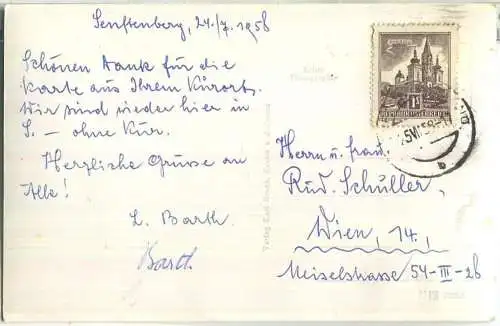 Senftenberg, 24./7. 1958
Schönen Dank für die
Karte aus Ihrem Kurort.
Wir sind wieder hier in
S. – ohne Kur.
Herzliche Grüsse an
Alle!
L. Barth
Barth
Echte
Photographie
REPUBLIK ÖSTERREICH
Herrn u. Frau
Rud. Schüller,
Wien, 14.,
Meiselstrasse 54-III-28